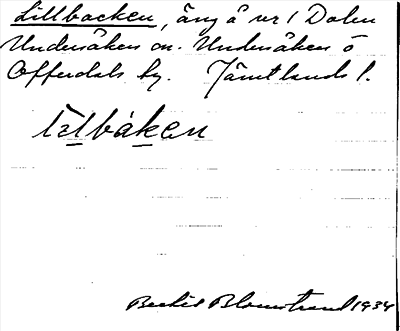 Lillbacken, äng å nr 1 Dalen
Undersåkers sn. Undersåkers o
Offerdals hg. Jämtlands l.
lilbáken
Beckis Blomstrand 1934